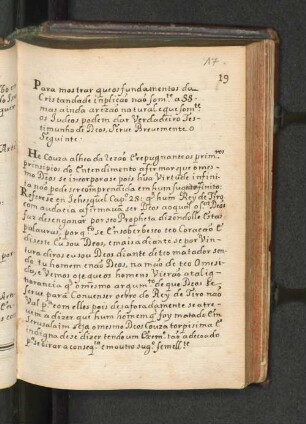 17.
19
Para mostrar que os fundamentos da
Cristandade inplicaõ naõ som.te a SS.
mas ainda a rezaõ natural e que som.te
os Judeos podem dar Verdadeiro Tes-
timunho de Deos, Serue Breuemente o
Seguinte.
He Couza alhea da rezaõ E repugnante aos prim.ros
principios do Entendimento afirmar que o mes-
mo Deos se incorporase pois hũa Virtude infini-
ta naõ pode ser comprendida em hum sugeito finito;
Referese en Jehesquel Cap.o 28: q hum Rey de Tiro
com audacia afirmaua ser Deos ao qual o S.or Deos
faz desenganar por seo Propheta dizendolle Estas
palauras, por q.to se Ensoberbeseo teo Coraçaõ E
diseste Eu sou Deos, mais adiante se por Vin-
tura diras eu sou Deos diante de teo matador sen-
do tu homem e naõ Deos, na maõ de teo
e Vemos oje que os homens Vieraõ a tal ig-
norancia q o mesmo argumento de que Deos se
serue para Conuenser o erro do Rey de Tiro naõ
Val p.a com elles pois desaforadamente se atre-
uem a dizer que hum homem q foy matado em
Jerusalaim seja o mesmo Deos couza torpissima E
indigna de se dizer tendo um Exem.lo taõ adecoado
p.a se tirar a conseq.a em outro sug.o semell.te